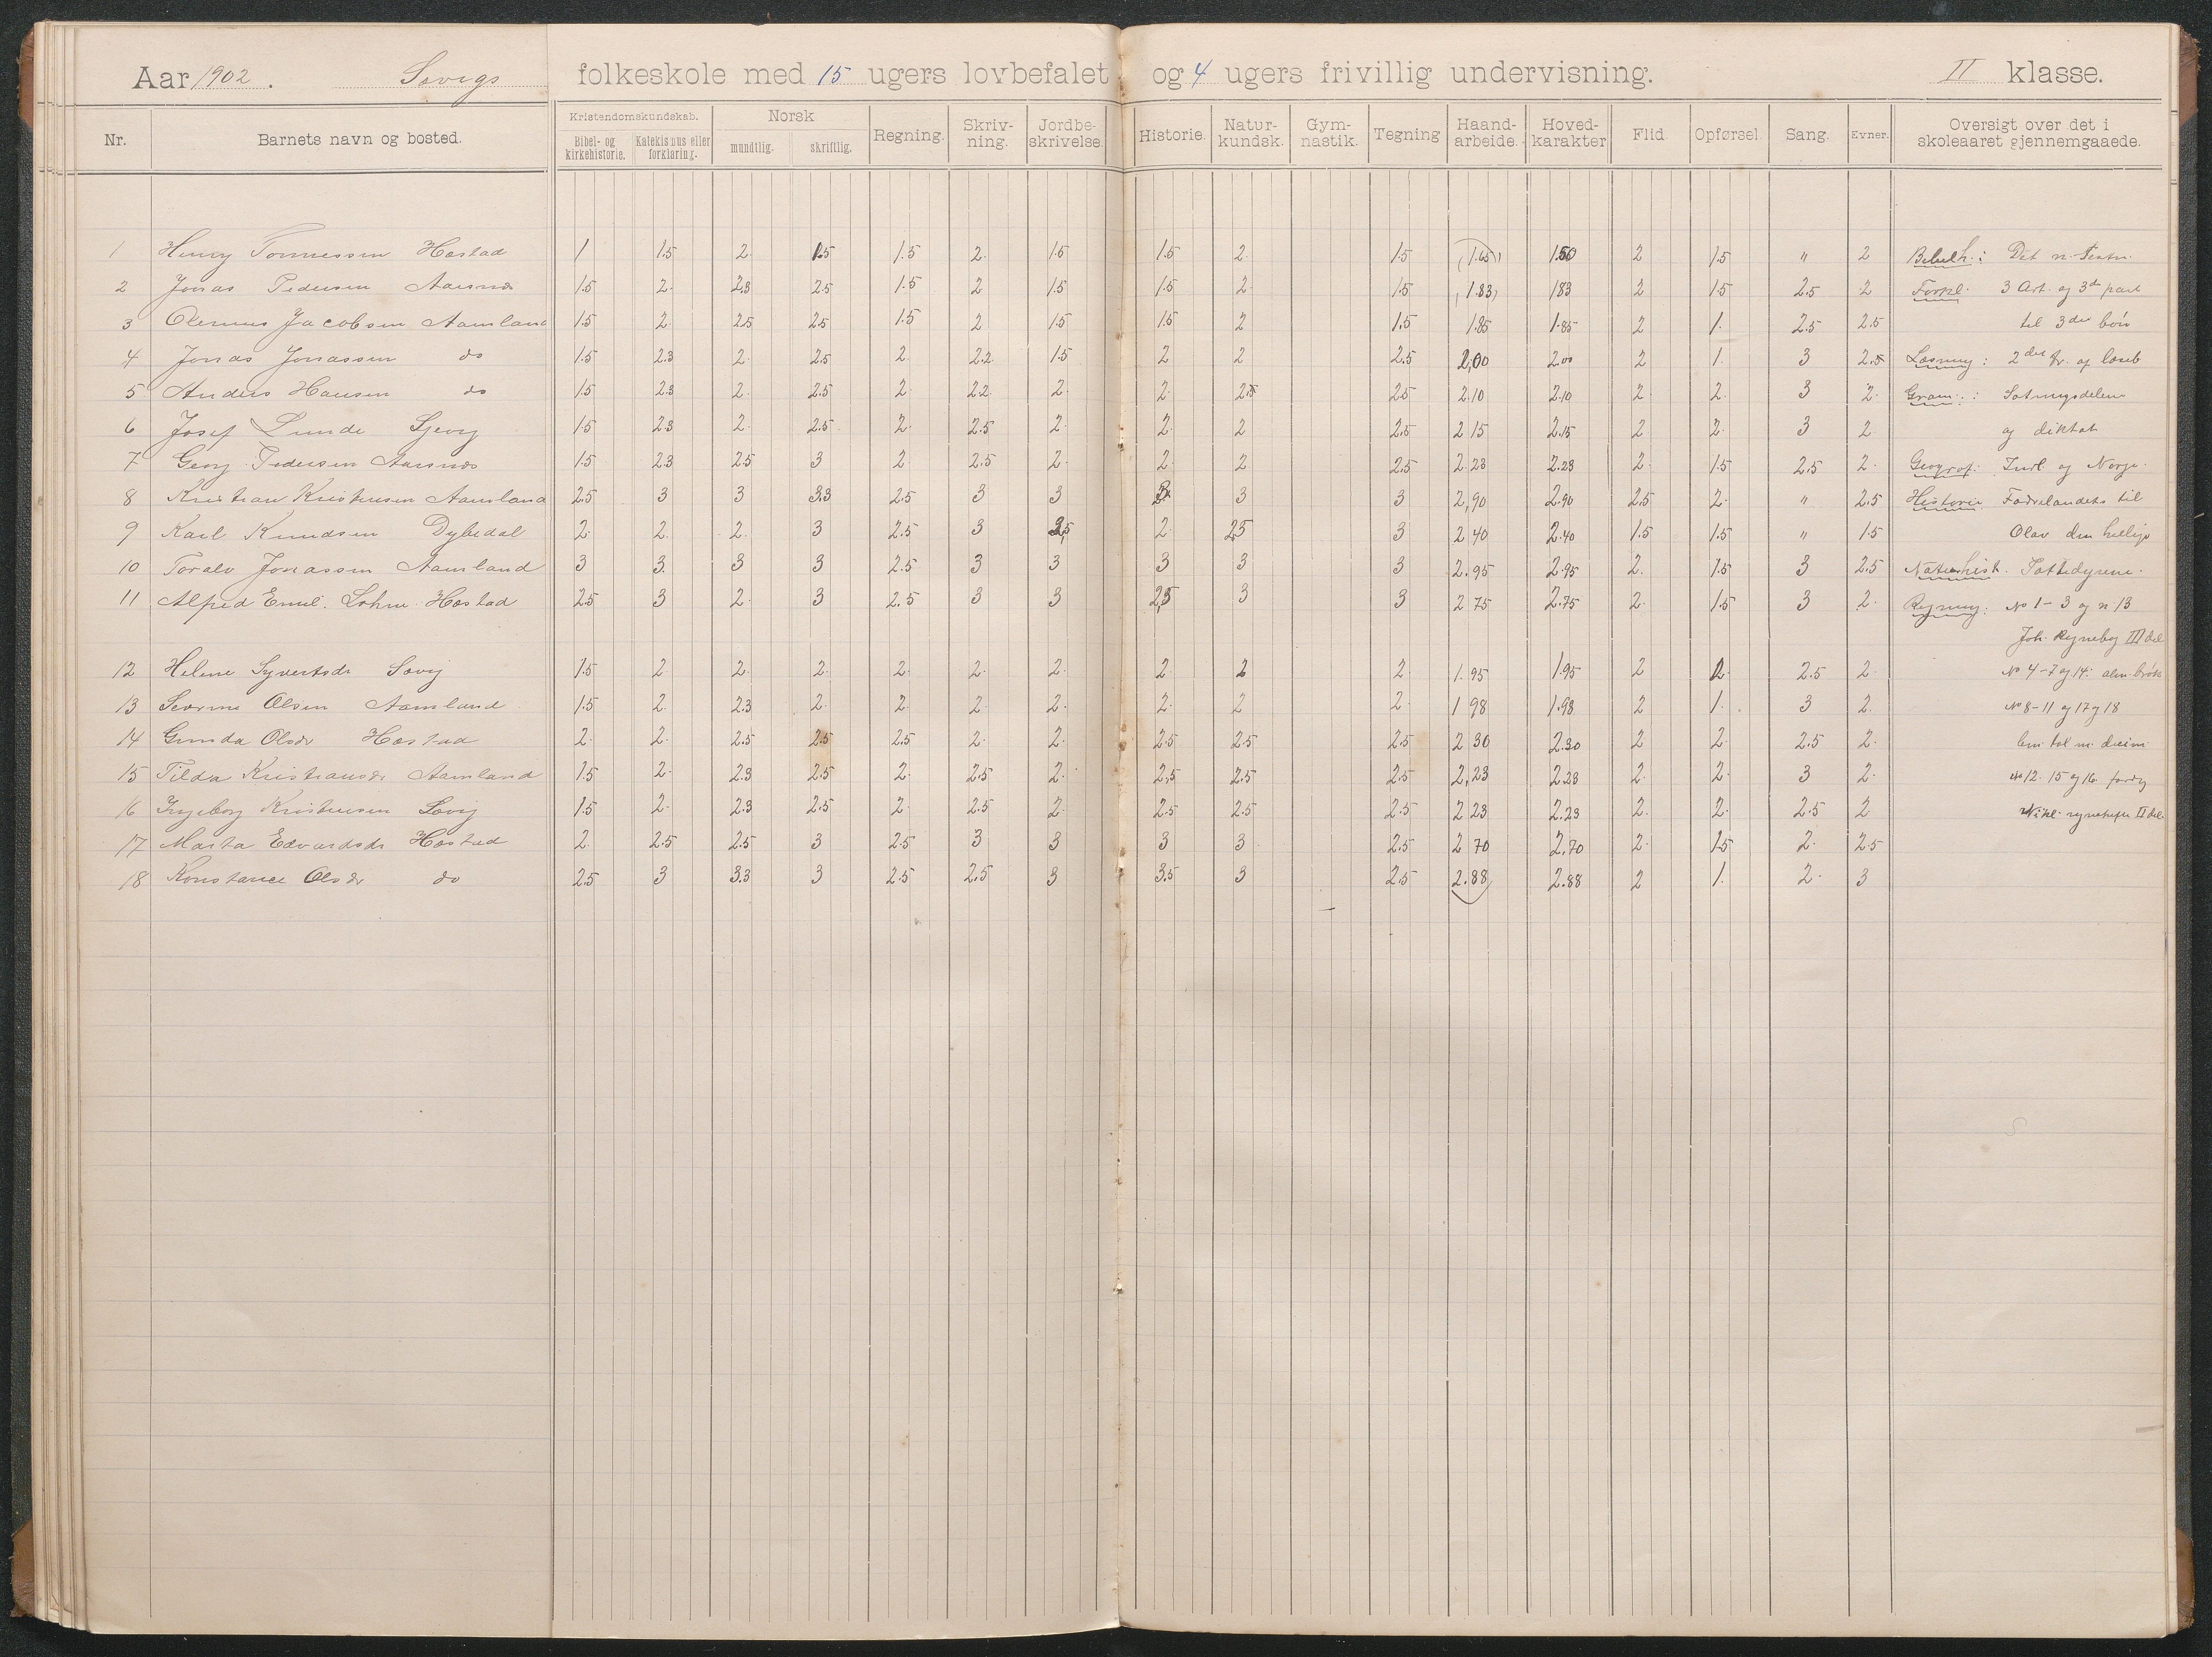 Aar 1902. Søvigs folkeskole med 15 ugers lovbefalet og 4 ugers frivillig undervisning. II klasse.
Nr. Barnets navn og bosted. Kristendomskundskab. Bibel- og kirkehistorie. Katekismus eller forklaring. Norsk mundtlig. skriftlig. Regning. Skriv-ning. Jordbe-skrivelse. Historie. Natur-kundsk. Gym-nastik. Tegning Haand-arbeide. Hoved-karakter Flid Opførsel. Sang. Evner. Oversigt over det i skoleaaret gjennemgaaede.
1 Henry Tønnessen Hæstad 1 1.5 2. 1.5 1.5 2. 1.5 1.5 2. 1.5 (1.65) 1.50 2 1.5 " 2 Bibelh.: Det n. Testm.
2 Jonas Pedersen Aarsnæs 1.5 2. 2.3 2.5 1.5 2 1.5 1.5 2. 1.5 1.83 1.83 2 1.5 2.5 2 Forkl. 3 Art. og 3die part
3 Olenius Jacobsen Aamland 1.5 2. 2.5 2.5 1.5 2 1.5 1.5 2 1.5 1.85 1.85 2 1. 2.5 2.5 til 3die bøn
4 Jonas Jonassen do 1.5 2.3 2. 2.5 2. 2.2 1.5 2 2 2.5 2,00 2.00 2 1. 3 2.5 Læsning: 2det tr. af læseb
5 Anders Hansen do 1.5 2.3 2. 2.5 2. 2.2. 2. 2. 2.5 2.5 2.10 2.10 2 2. 3 2. Gram.: Sætningsdelene
6 Josef Lunde Sjevig 1.5 2.3 2 2.5 2. 2.5 2. 2. 2 2.5 2 15 2.15 2 2. 3 2 og diktat
7 Georg Pedersen Aarsnæs 1.5 2.3 2.5 3 2 2.5 2. 2. 2. 2.5 2.23 2.23 2. 1.5 2.5 2. Geograf. Indl og Norge.
8 Kristian Kristensen Aamland 2.5 3 3 3.3 2.5 3 3 3 3 2,90 2.90 2.5 2. " 2.5 Historie Fædrelandets til
9 Karl Knudsen Dybedal 2. 2. 2. 3 2.5 3 2,5 2. 2,5 3 2 40 2.40 1.5 1.5 " 1.5 Olav den hellige
10 Toralv Jonassen Aamland 3 3. 3 3 2.5 3 3 3 3 3 2.95 2.95 2. 1.5 3 2.5 Naturhist. Pattedyrene.
11 Alfred Emil. Lohne Hæstad 2.5 3 2. 3 2.5 3 3 2,5 3 3 2 75 2.75 2. 1.5 3 2. Regning: No 1-3 og n 13
Joh. Regnebog III del
12 Helene Syvertsdr Søvig 1.5 2 2. 2. 2. 2. 2. 2 2 2 1.95 1.95 2 2. 2.5 2. No 4-7 og 14: alm. brøk
13 Severine Olsen Aamland 1.5 2. 2.3 2 2. 2 2. 2. 2 2. 1 98 1.98 2 1. 3 2. No 8-11 og 17 og 18
14 Gunda Olsdr Hæstad 2. 2. 2.5 2.5 2.5 2. 2. 2.5 2.5 2.5 2 30 2.30 2 2. 2.5 2.
15 Tilda Kristiansdr Aamland 1.5 2. 2.3 2.5 2. 2.5 2. 2,5 2.5 2.5 2,23 2.23 2. 2. 3 2. No 12. 15 og 16.
16 Ingeborg Kristensen Søvig 1.5 2. 2.3 2.5 2. 2.5 2. 2.5 2.5 2.5 2 23 2.23 2. 2. 2.5 2 II del.
17 Marta Edvardsdr Hæstad 2. 2.5 2.5 3 2.5 3 3 3 3 2.5 2 70 2.70 2. 1.5 2. 2.5
18 Konstance Olsdr do 2.5 3 3.3 3 2.5 2.5 3 3.5 3 2.5 2.88 2.88 2 1. 2. 3